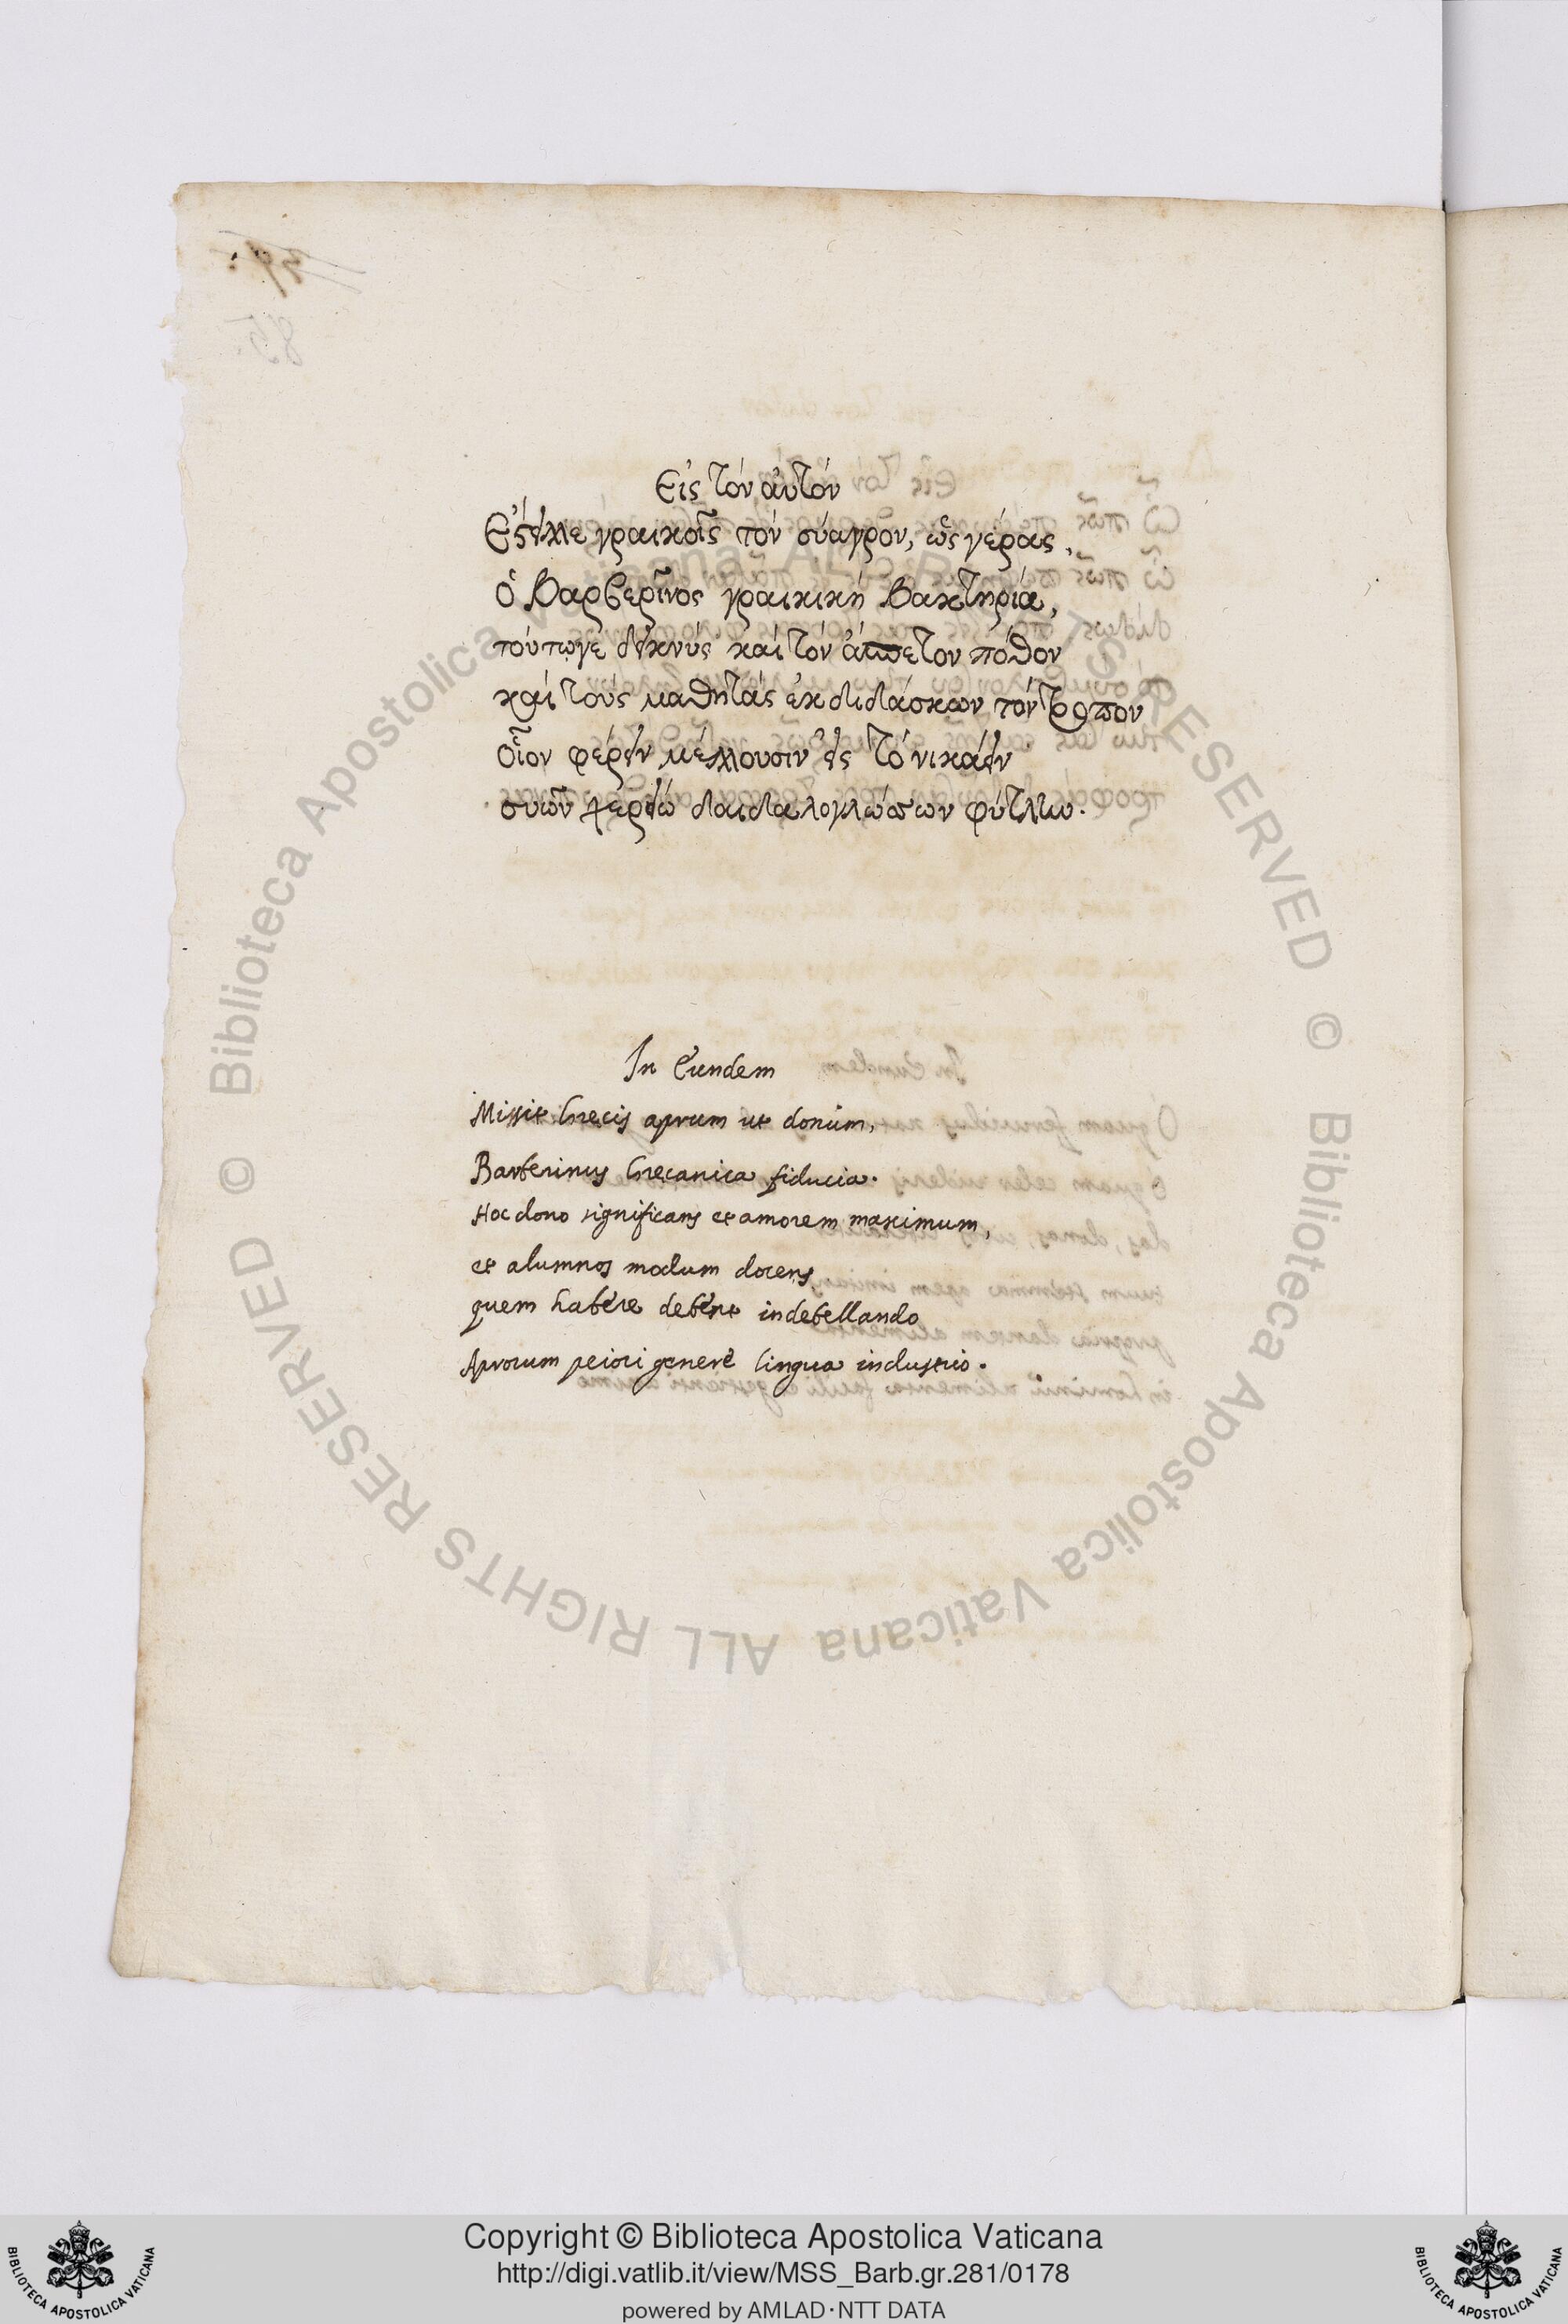 Εἰς τὸν αὐτόν
Ἔστειλε γραικοῖς τὸν σύαγρον, ὡς γέρας,
ὁ Βαρβερῖνος γραικικὴ Βακτηρία,
τούτωγε δεικνὺς καὶ τὸν ἄσπετον πόθον
καὶ τοὺς μαθητὰς ἐκδιδάσκων τὸν τρόπον
οἷον φέρειν μέλλουσιν εἰς τὸ νικάειν
συῶν χερείω δαιδαλογλώσσων φύτλην.
In Eundem
Missit Grecis aprum ut donum,
Barberinus Grecanica fiducia.
Hoc dono significans et amorem maximum,
et alumnos modum docens
quem habere debent in debellando
Aprorum peiori genere lingua industrio.
Copyright © Biblioteca Apostolica Vaticana
http://digi.vatlib.it/view/MSS_Barb.gr.281/0178
powered by AMLAD·NTT DATA
BIBLIOTECA APOSTOLICA VATICANA
BIBLIOTECA APOSTOLICA VATICANA
© Biblioteca Apostolica Vaticana ALL RIGHTS RESERVED © Biblioteca Apostolica Vaticana ALL RIGHTS RESERVED